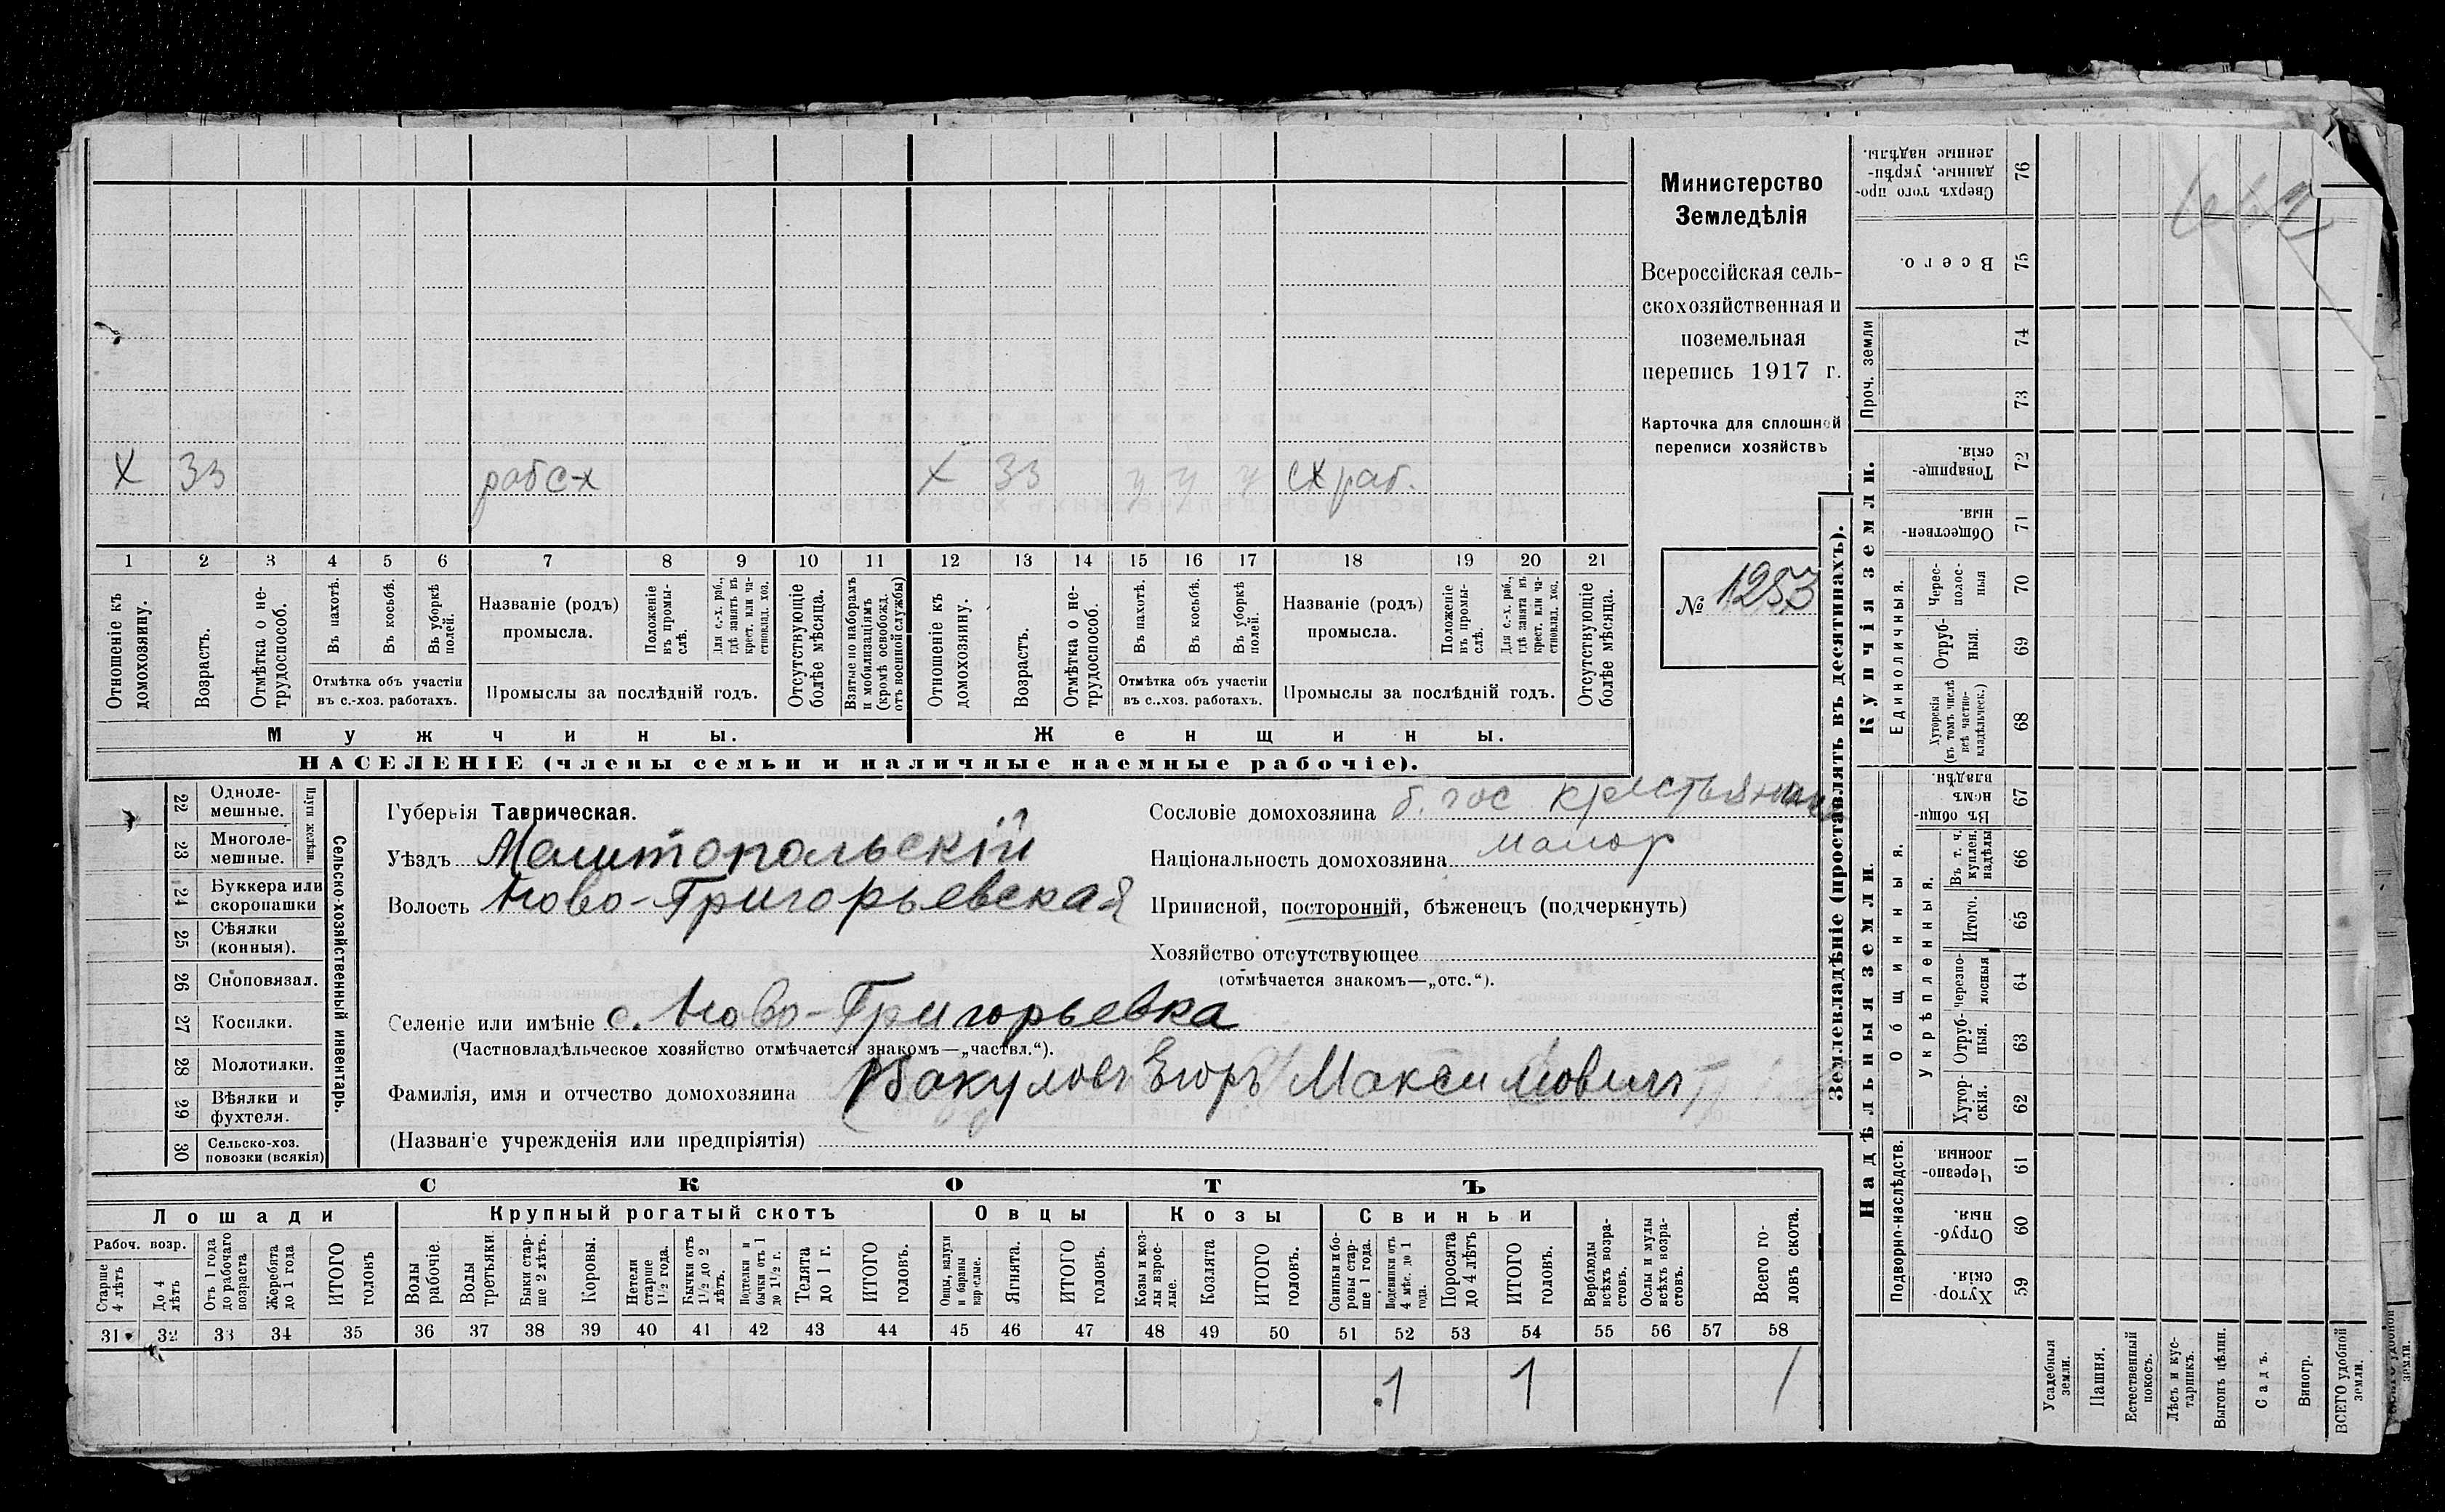 X 33 раб с-х X 33 у у у сх раб.
1 2 3 4 5 6 7 8 9 10 11 12 13 14 15 16 17 18 19 20 21
Отношеніе къ домохозяину.
Возрастъ.
Отмѣтка о не-трудоспособ.
Въ пахотѣ.
Въ косьбѣ.
Въ уборкѣ полей.
Отмѣтка объ участіи
въ с.-хоз. работахъ.
Названіе (родъ)
промысла.
Положеніе въ промы-слѣ.
Для с.-х. раб., гдѣ занятъ въ крест. или ча-стновлад. хоз.
Промыслы за послѣдній годъ.
Отсутствующіе болѣе мѣсяца.
Взятые по наборамъ и мобилизаціямъ (кромѣ освобожд. отъ военной службы)
Отношеніе къ домохозяину.
Возрастъ.
Отмѣтка о не-трудоспособ.
Въ пахотѣ.
Въ косьбѣ.
Въ уборкѣ полей.
Отмѣтка объ участіи
въ с..хоз. работахъ.
Названіе (родъ)
промысла.
Положеніе въ промы-слѣ.
Для с.-х. раб., гдѣ занята въ крест. или ча-стновлад. хоз.
Промыслы за послѣдній годъ.
Отсутствующіе болѣе мѣсяца.
Мужчины. Женщины.
НАСЕЛЕНІЕ (члены семьи и наличные наемные рабочіе).
Министерство
Земледѣлія
Всероссійская сель-
скохозяйственная и
поземельная
перепись 1917 г.
Карточка для сплошной
переписи хозяйствъ
№ 1253
22 Одноле-мешные.
23 Многоле-мешные.
Плуги желѣзн.
24 Буккера или скоропашки
25 Сѣялки (конныя).
26 Сноповязал.
27 Косилки.
28 Молотилки.
29 Вѣялки и фухтеля.
30 Сельско-хоз. повозки (всякія)
Сельско-хозяйственный инвентарь.
Губернія Таврическая.
Уѣздъ Мелитопольскій
Волость Ново-Григорьевская
Сословіе домохозяина б. гос крестьянин
Національность домохозяина малор
Приписной, посторонній, бѣженецъ (подчеркнуть)
Хозяйство отсутствующее
(отмѣчается знакомъ—„отс.“).
Селеніе или имѣніе с. Ново-Григорьевка
(Частновладѣльческое хозяйство отмѣчается знакомъ—„частвл.“).
Фамилія, имя и отчество домохозяина Бакуловъ Егоръ Максимовичъ
(Названіе учрежденія или предпріятія)
СКОТЪ
Лошади Крупный рогатый скотъ Овцы Козы Свиньи
Рабоч. возр.
Старше 4 лѣтъ
До 4 лѣтъ
Отъ 1 года до рабочаго возраста
Жеребята до 1 года
ИТОГО головъ
Волы рабочіе.
Волы третьяки.
Быки стар-ше 2 лѣтъ.
Коровы.
Нетели старше 1½ года.
Бычки отъ 1½ до 2 лѣтъ.
Подтелки и бычки отъ 1 до 1½ г.
Телята до 1 г.
ИТОГО головъ.
Овцы, валухи и бараны взрослые.
Ягнята.
ИТОГО головъ.
Козы и коз-лы взрос-лые.
Козлята
ИТОГО головъ.
Свиньи и бо-ровы стар-ше 1 года.
Подсвинки отъ 4 мѣс. до 1 года.
Поросята до 4 лѣтъ
ИТОГО головъ.
Верблюды всѣхъ возра-стовъ.
Ослы и мулы всѣхъ возра-стовъ.
Всего го-ловъ скота.
31 32 33 34 35 36 37 38 39 40 41 42 43 44 45 46 47 48 49 50 51 52 53 54 55 56 57 58
1 1 1
Землевладѣніе (проставлять въ десятинахъ).
Купчія земли.
Надѣльныя земли.
Сверхъ того про-данные, укрѣп-ленные надѣлы. 76
Всего. 75
Проч. земли 74
73
Товарище-скія. 72
Обществен-ныя. 71
Единоличныя.
Черес-полос-ныя 70
Отруб-ныя. 69
Хуторскія (въ томъ числѣ всѣ частно-владѣльческ.) 68
Общинныя.
Въ общи-номъ владѣн. 67
Укрѣпленныя.
Въ т. ч. куплен. надѣлы 66
Итого. 65
Черезпо-лосныя 64
Отруб-ныя. 63
Хутор-скія. 62
Подворно-наслѣдств.
Черезпо-лосныя. 61
Отруб-ныя. 60
Хутор-скія. 59
Усадебныя земли.
Пашня.
Естественный покосъ.
Лѣсъ и кус-тарникъ.
Выгонъ цѣлин.
Садъ.
Виногр.
ВСЕГО удобной земли.